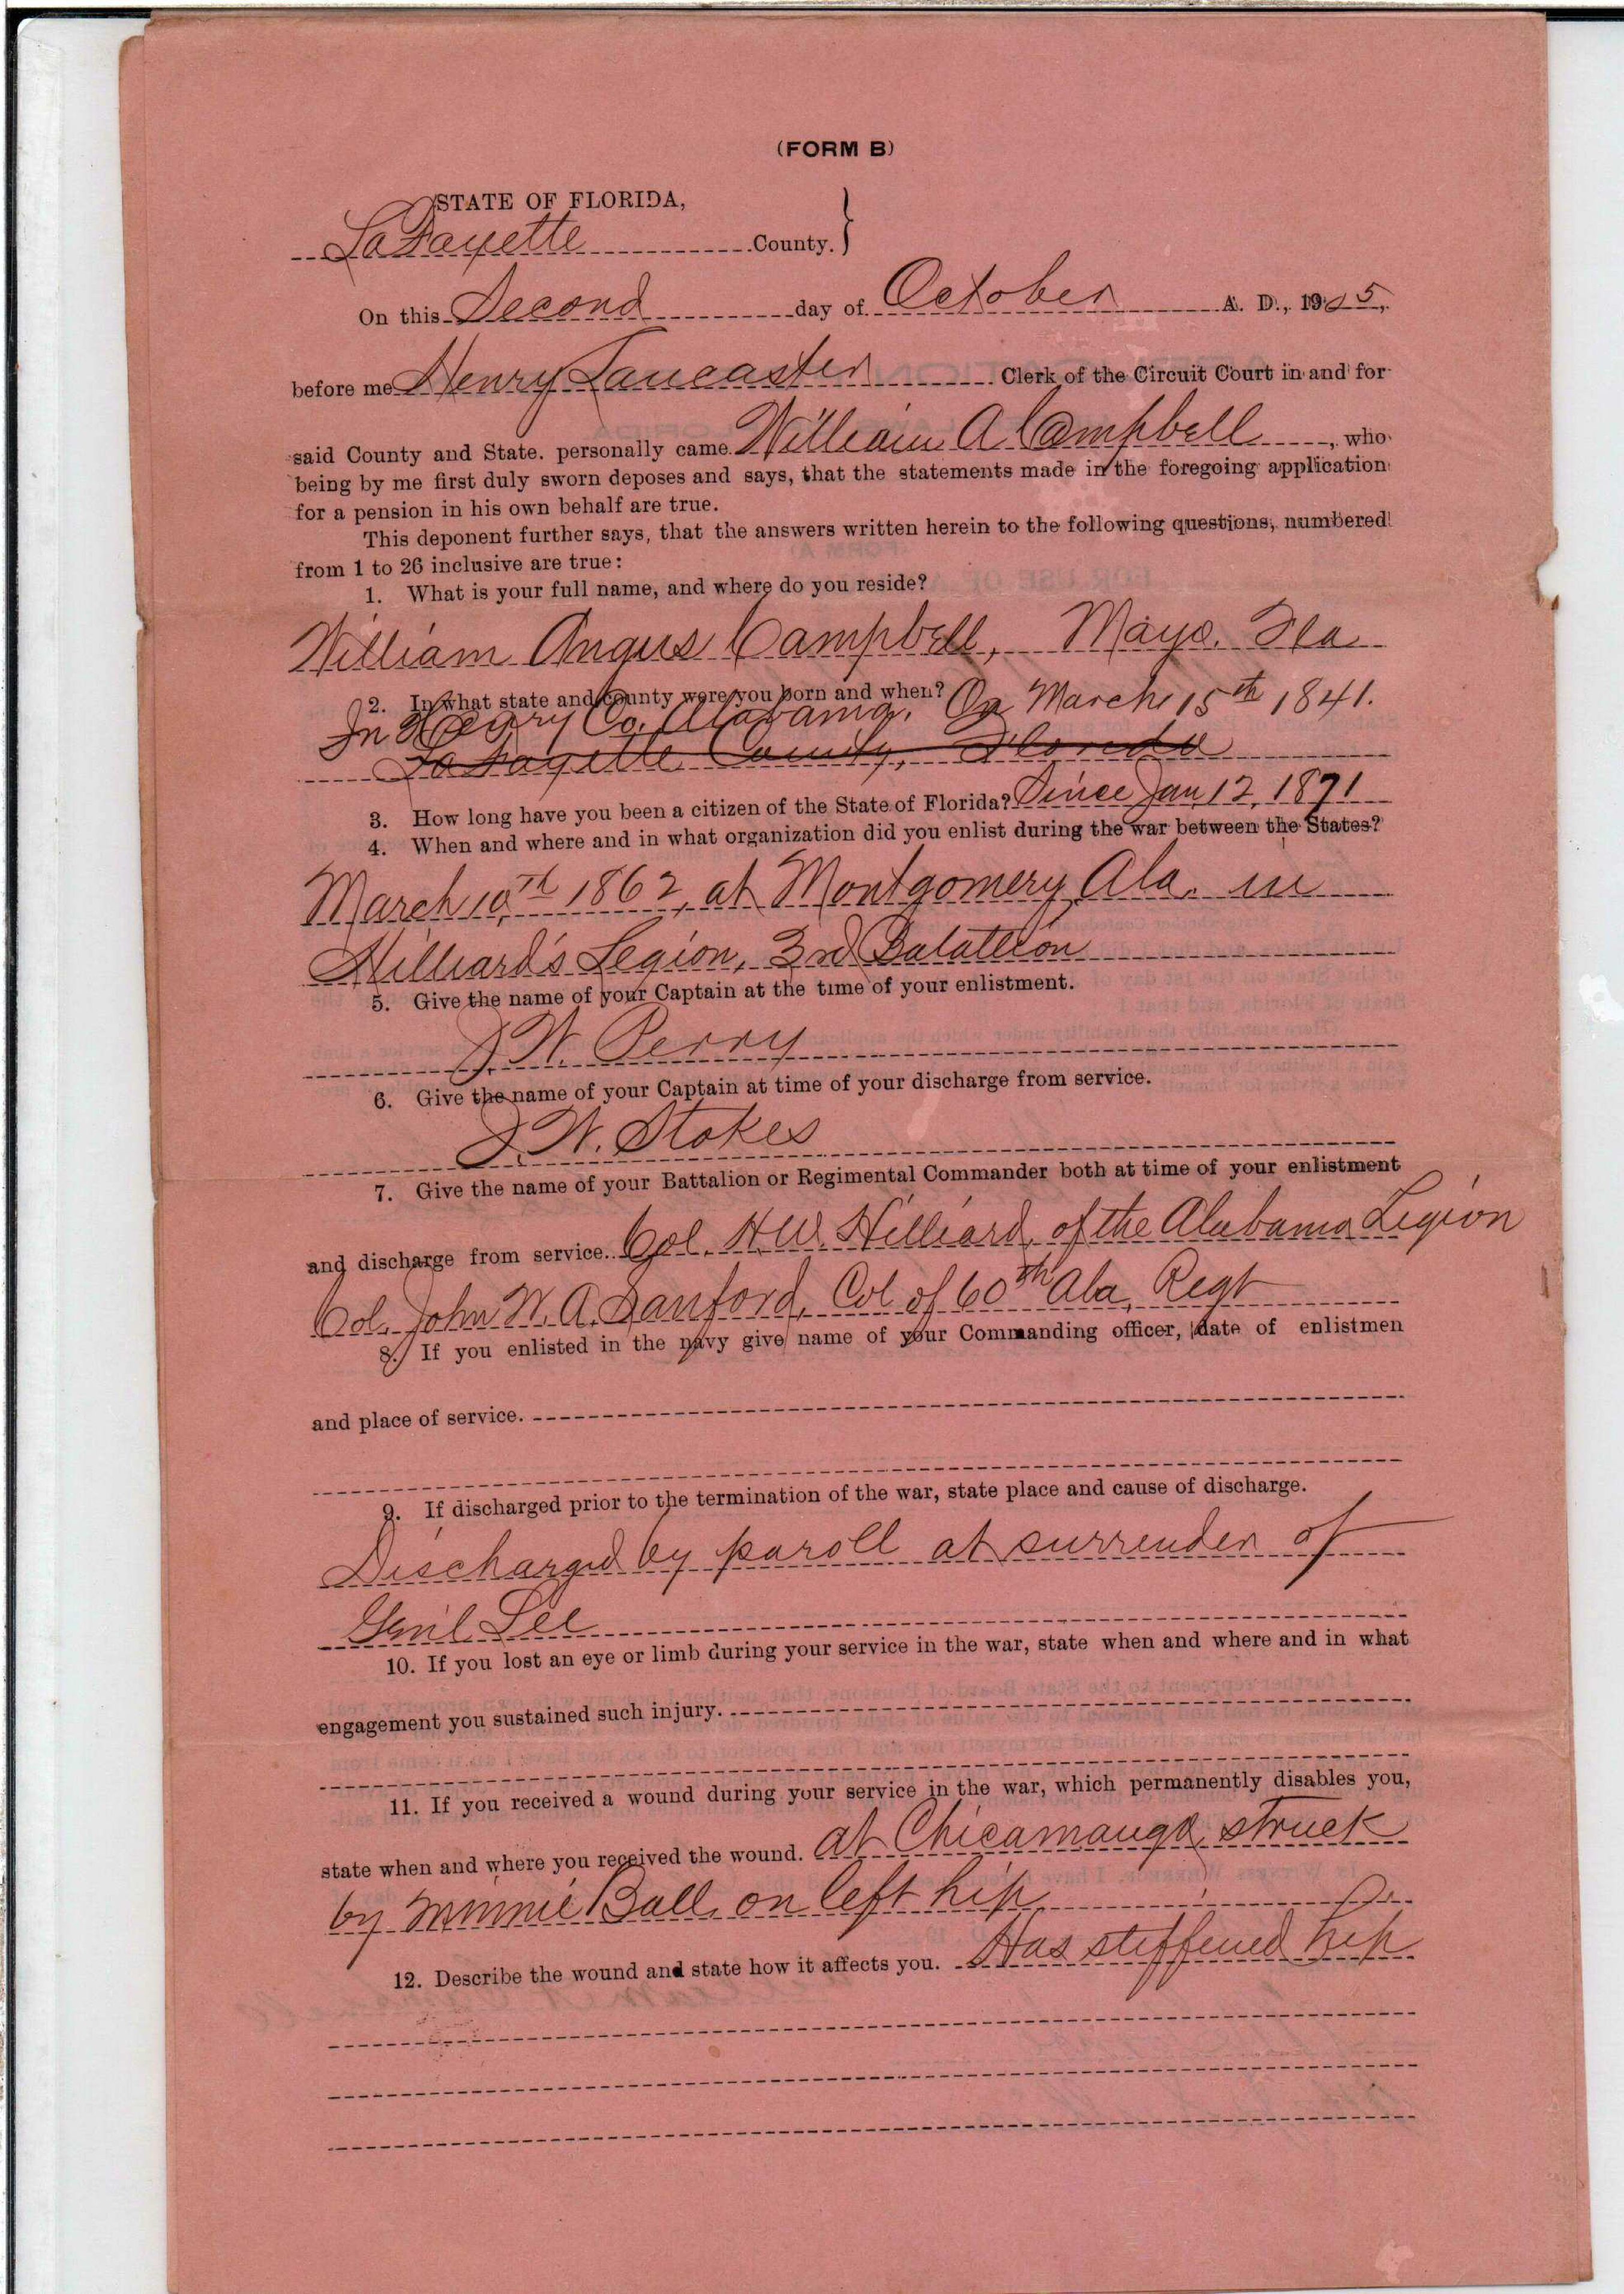 (FORM B)
STATE OF FLORIDA,
LaFayette County. }
On this Second day of October A. D., 1905,
before me Henry Lancaster Clerk of the Circuit Court in and for
said County and State. personally came William A Campbell, who
being by me first duly sworn deposes and says, that the statements made in the foregoing application
for a pension in his own behalf are true.
This deponent further says, that the answers written herein to the following questions, numbered
from 1 to 26 inclusive are true:
1. What is your full name, and where do you reside?
William Angus Campbell, Mayo. Fla
2. In what state and county were you born and when? On March 15th 1841.
In Henry Co. Alabama.
LaFayette County, Florida
3. How long have you been a citizen of the State of Florida? Since Jan 12, 1871
4. When and where and in what organization did you enlist during the war between the States?
March 10th 1862, at Montgomery Ala. in
Hilliard's Legion, 3rd Batallion
5. Give the name of your Captain at the time of your enlistment.
J. W. Perry
6. Give the name of your Captain at time of your discharge from service.
J. W. Stokes
7. Give the name of your Battalion or Regimental Commander both at time of your enlistment
and discharge from service. Col. H.W. Hilliard, of the Alabama Legion
Col. John W. A. Sanford, Col of 60th Ala, Regt
8. If you enlisted in the navy give name of your Commanding officer, date of enlistmen
and place of service.
9. If discharged prior to the termination of the war, state place and cause of discharge.
Discharged by paroll at surrender of
Gen'l Lee
10. If you lost an eye or limb during your service in the war, state when and where and in what
engagement you sustained such injury.
11. If you received a wound during your service in the war, which permanently disables you,
state when and where you received the wound. at Chicamauga struck
by minnie Ball on left hip
12. Describe the wound and state how it affects you. Has stiffened hip